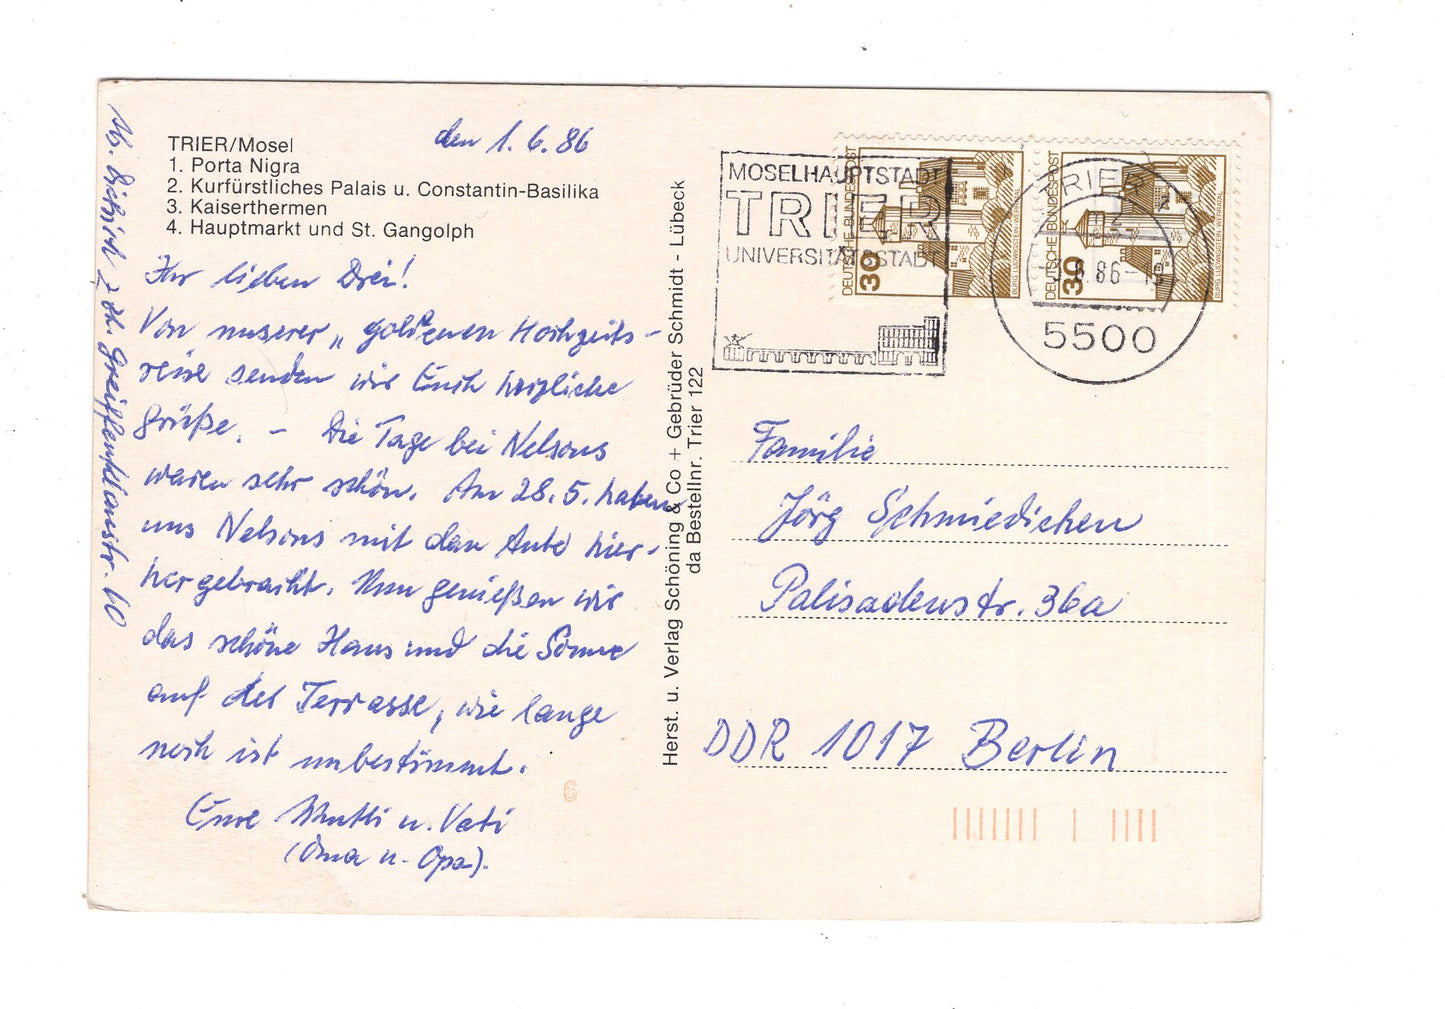 TRIER/Mosel
1. Porta Nigra
2. Kurfürstliches Palais u. Constantin-Basilika
3. Kaiserthermen
4. Hauptmarkt und St. Gangolph
den 1.6.86
Ihr lieben Drei!
Von unserer „goldenen Hochzeits-
reise senden wir Euch herzliche
Grüße. - Die Tage bei Nelsons
waren sehr schön. Am 28.5. haben
uns Nelsons mit dem Auto hier-
her gebracht. Nun genießen wir
das schöne Haus und die Sonne
auf der Terrasse, wie lange
noch ist unbestimmt.
Eure Mutti u. Vati
(Oma u. Opa).
Ab. Dietrich Greiffenklaustr. 60
Herst. u. Verlag Schöning & Co + Gebrüder Schmidt - Lübeck
da Bestellnr. Trier 122
MOSELHAUPTSTADT
TRIER
UNIVERSITÄTSSTADT
DEUTSCHE BUNDESPOST
30
BURG LUDWIGSTEIN WERRATAL
DEUTSCHE BUNDESPOST
30
BURG LUDWIGSTEIN WERRATAL
TRIER
2
z
86-
5500
Familie
Jörg Schmiedichen
Palisadenstr. 36a
DDR 1017 Berlin
6